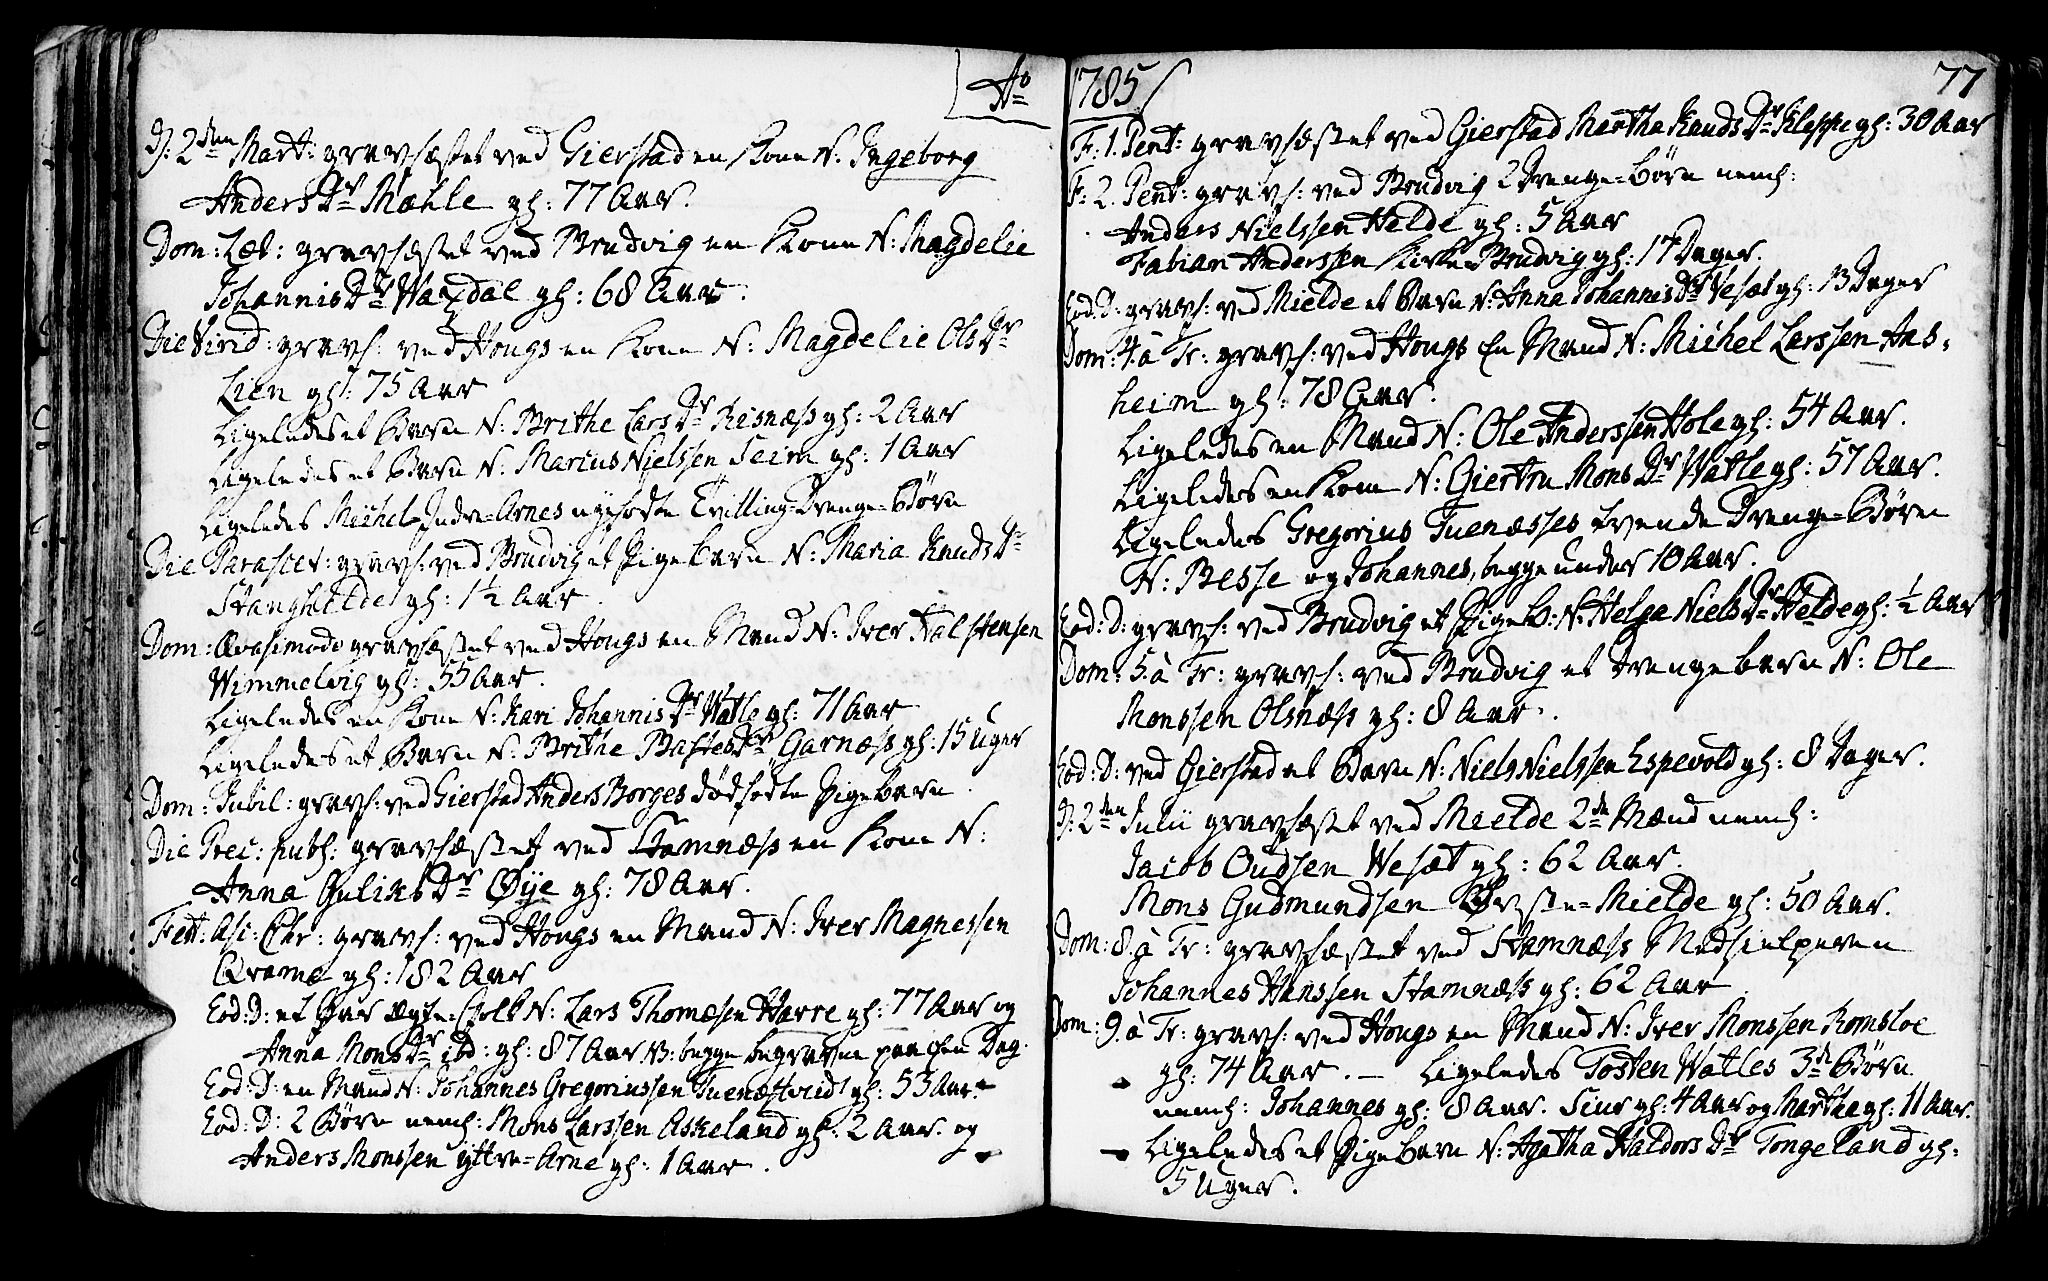 Aº 1785
77
D: 2den Mart: gravfæstet ved Gierstad en Kone N: Ingeborg
Anders Dr Mæhle gl: 77 Aar.
Dom: Læt: gravfæstet ved Brudvig en Kone N: Magdelie
Johannis Dr Waxdal gl: 68 Aar.
Die Virid: gravf: ved Hougs en Kone N: Magdelie Ols Dr
Lien gl: 75 Aar
Ligeledes et Barn N: Brithe Lars Dr Resnæss gl: 2 Aar
Ligeledes et Barn N: Marcus Nielssen Seim gl: 1 Aar
Ligeledes Michel Indre-Arnes nyefødte Tvilling-Drenge-Børn
Die Parascev: gravf: ved Brudvig et Pigebarn N: Maria Knuds Dr
Stanghelde gl: 1½ Aar.
Dom: Qvasimodo gravfæstet ved Hougs en Mand N: Iver Halstensen
Wimmelvig gl: 55 Aar.
Ligeledes en Kone N: Kari Johannis Dr Watle gl: 71 Aar
Ligeledes et Barn N: Brithe Bastes Dr Garnæss gl: 15 Uger
Dom: Jubil: gravf: ved Gierstad Anders Borges dødfødte Pigebarn.
Die Prec: publ: gravfæstet ved Stamnæss en Kone N:
Anna Guliks Dr Øÿe gl: 78 Aar.
Fest: Asc: Chr: gravf: ved Hougs en Mand N: Iver Magnessen
Qvamme gl: 82 Aar
Eod: D: et Par Ægte-Folk N: Lars Thomæsen Harre gl: 77 Aar og
Anna Mons Dr ibd: gl: 87 Aar NB: begge begravne paa een Dag.
Eod: D: en Mand N: Johannes Gregoriussen Tuenæstvid gl: 53 Aar.
Eod: D: 2 Børn neml: Mons Larssen Askeland gl: 2 Aar. og
Anders Monssen Yttre-Arne gl: 1 Aar.
F: 1. Pent: gravfæstet ved Gierstad Martha Knuds Dr Kleppe gl: 30 Aar
F: 2. Pent: gravf: ved Brudvig 2 Drenge-Børn neml:
Anders Nielssen Helde gl: 5 Aar
Fabian Anderssen Kirke Brudvig gl: 17 Dager.
Eod: D: gravf: ved Mielde et Barn N: Anna Johannis Dr Vesæt gl: 13 Dager
Dom: 4. à Tr: gravf: ved Hougs En Mand N: Michel Larssen Aas-
heim gl: 78 Aar.
Ligeledes en Mand N: Ole Anderssen Hole gl: 54 Aar.
Ligeledes en Kone N: Giertru Mons Dr Watle gl: 57 Aar.
Ligeledes Gregorius Tuenæsses tvende Drenge-Børn
N: Besse og Johannes, begge under 10 Aar.
Eod: D: gravf: ved Brudvig et Pigeb: N: Helga Niels Dr Helde gl: ½ Aar
Dom: 5. à Tr: gravf: ved Brudvig et Drengebarn N: Ole
Monssen Olsnæss gl: 8 Aar.
Eod: D: ved Gierstad et Barn N: Niels Nielssen Espevold gl: 8 Dager.
D: 2den Julii gravfæstet ved Mielde 2de Mænd neml:
Jacob Oudsen Wesæt gl: 62 Aar.
Mons Gudmundsen Øvste-Mielde gl: 50 Aar.
Dom: 8. à Tr: gravfæstet ved Stamnæss Medhielperen
Johannes Hanssen Stamnæss gl: 62 Aar
Dom: 9. à Tr: gravf: ved Hougs en Mand N: Iver Monssen Romsloe
gl: 74 Aar. — Ligeledes Tosten Watles 3de Børn
neml: Johannes gl: 8 Aar. Siur gl: 4 Aar og Marthe gl: 11 Aar.
Ligeledes et Pigebarn N: Agatha Haldors Dr Tongeland gl:
5 Uger.